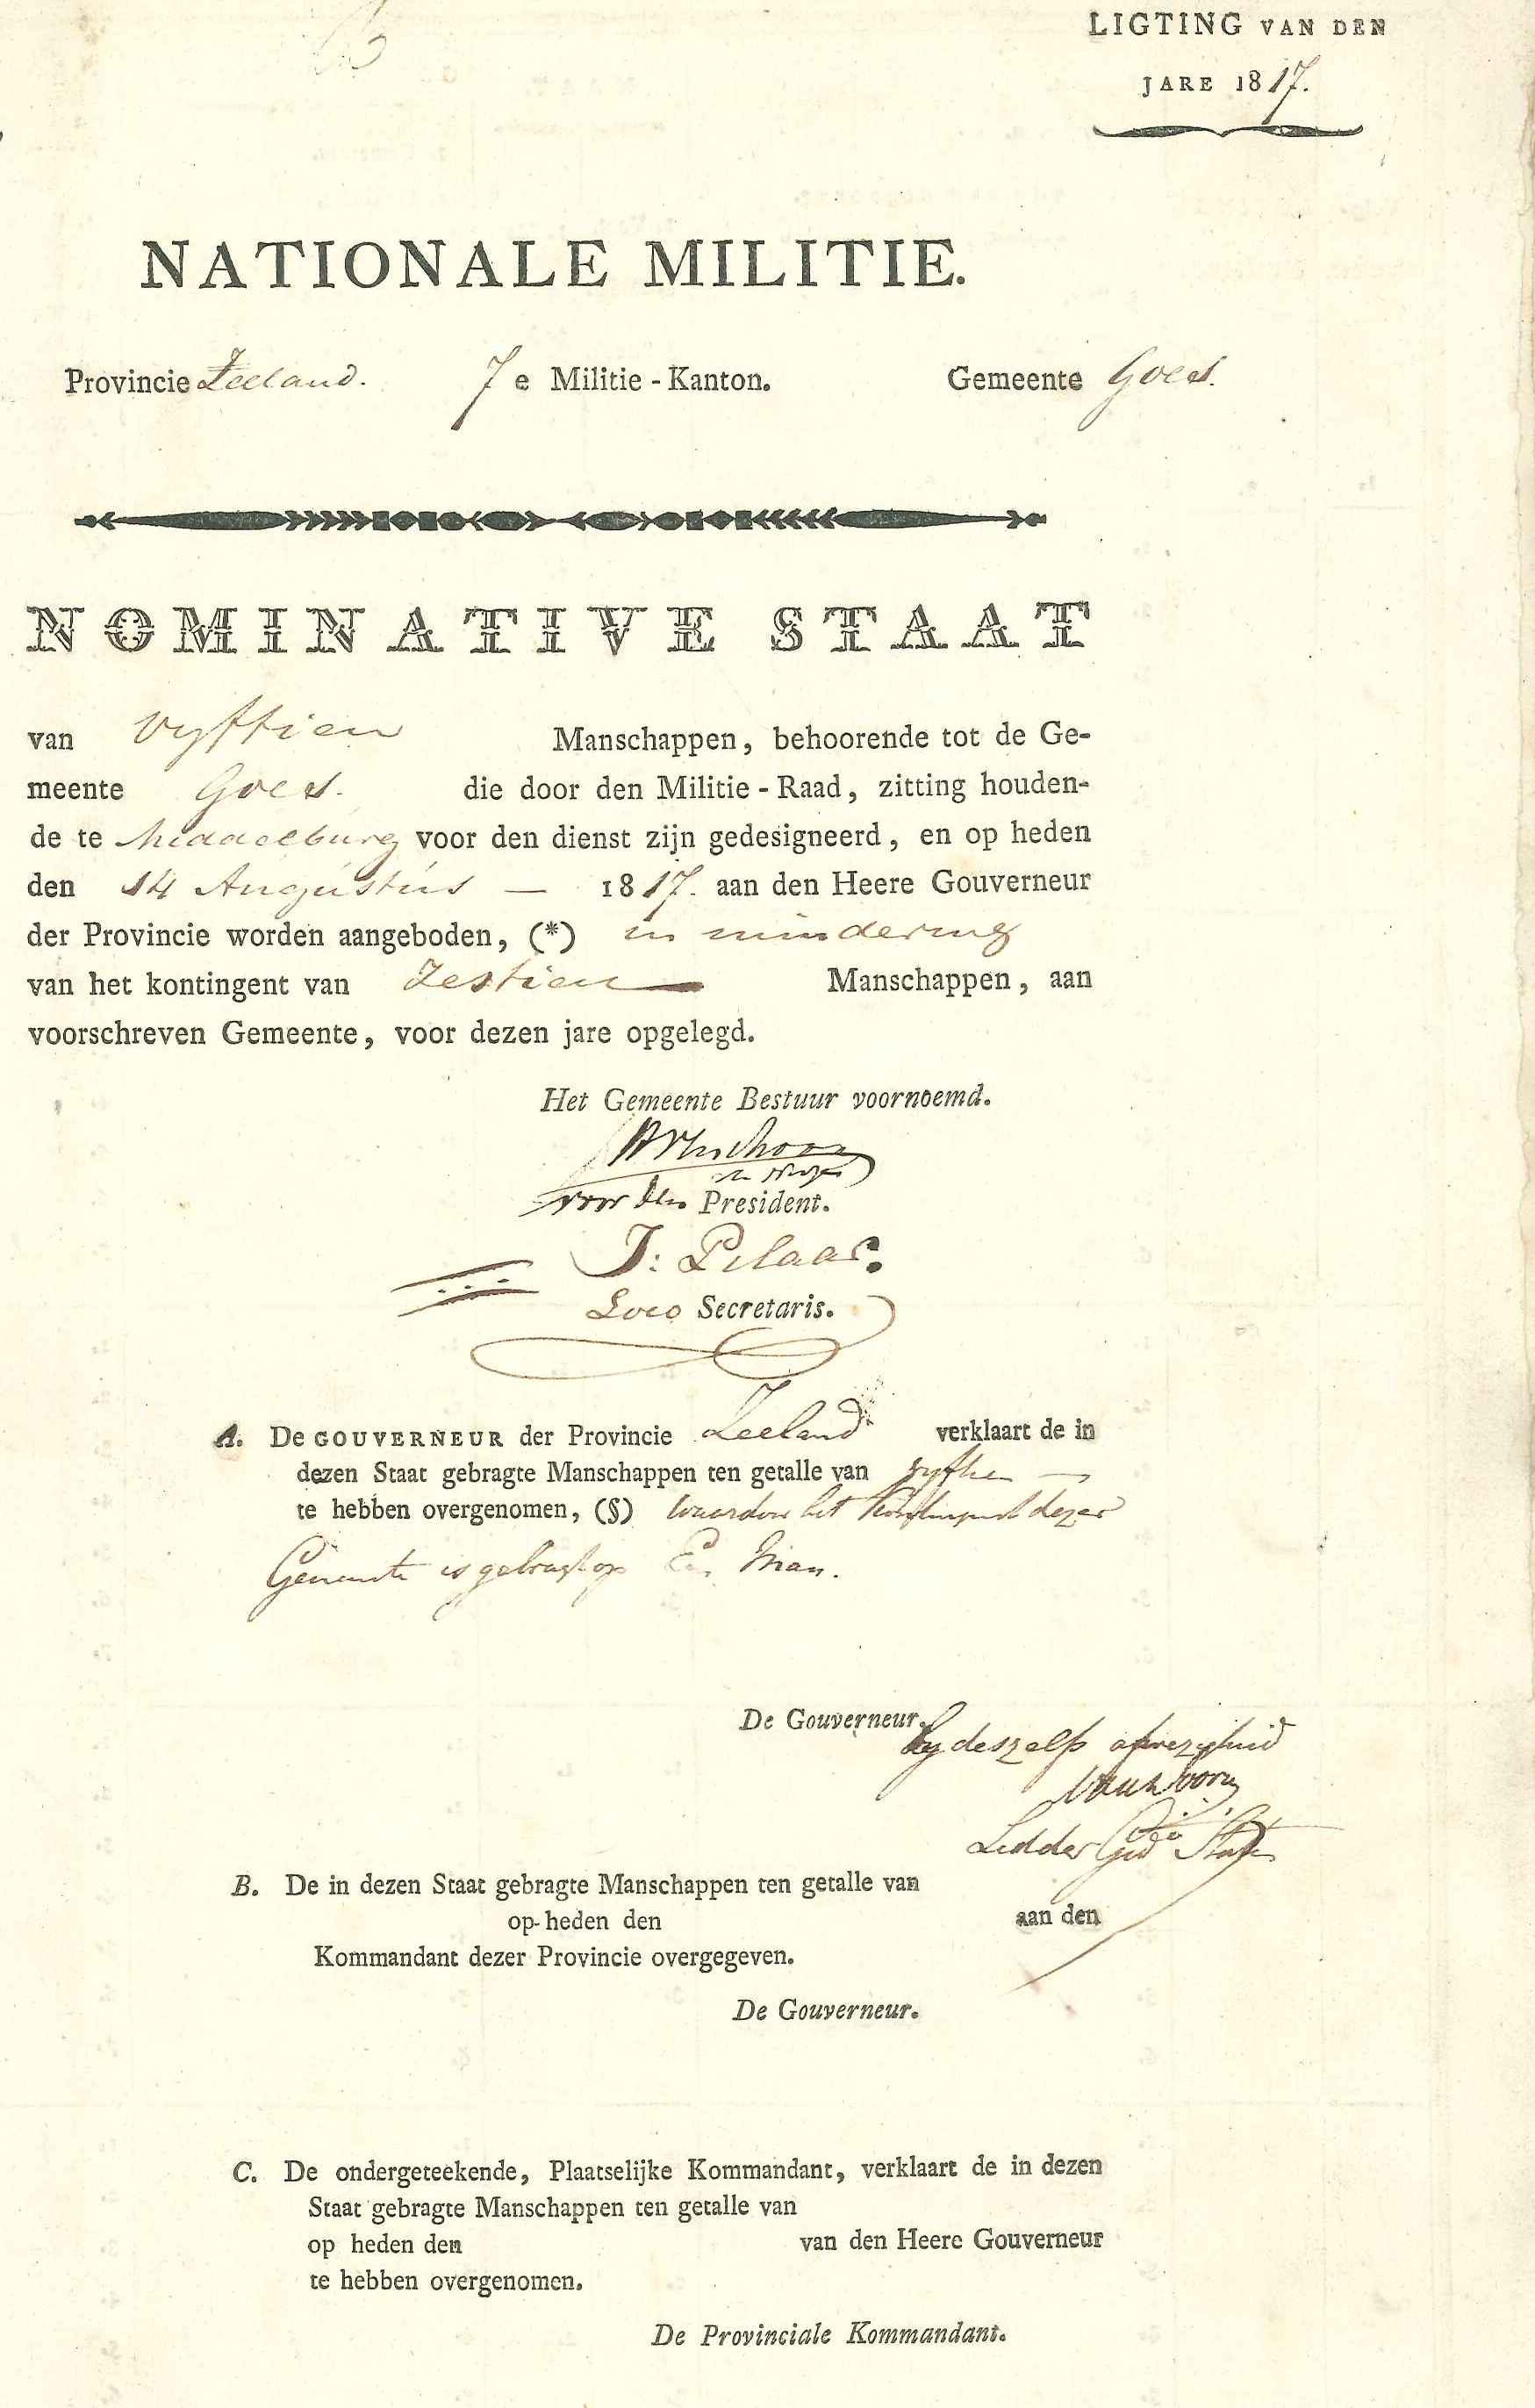 LIGTING VAN DEN
JARE 1817.
NATIONALE MILITIE.
Provincie Zeeland. 7e Militie-Kanton. Gemeente Goes.
NOMINATIVE STAAT
van vyftien Manschappen, behoorende tot de Ge-
meente Goes. die door den Militie-Raad, zitting houden-
de te Middelburg voor den dienst zijn gedesigneerd, en op heden
den 14 Augustus — 1817. aan den Heere Gouverneur
der Provincie worden aangeboden, (*) in mindering
van het kontingent van Zestien — Manschappen, aan
voorschreven Gemeente, voor dezen jare opgelegd.
Het Gemeente Bestuur voornoemd.
voor den President.
J: Pilaar.
Loco Secretaris.
A. De GOUVERNEUR der Provincie Zeeland verklaart de in
dezen Staat gebragte Manschappen ten getalle van vyftien —
te hebben overgenomen, (§) waardoor het kontingent dezer
Gemeente is gebragt op Een Man.
De Gouverneur.
by deszelfs afwezigheid
Lid der Gedde Staten
B. De in dezen Staat gebragte Manschappen ten getalle van
op heden den aan den
Kommandant dezer Provincie overgegeven.
De Gouverneur.
C. De ondergeteekende, Plaatselijke Kommandant, verklaart de in dezen
Staat gebragte Manschappen ten getalle van
op heden den van den Heere Gouverneur
te hebben overgenomen.
De Provinciale Kommandant.